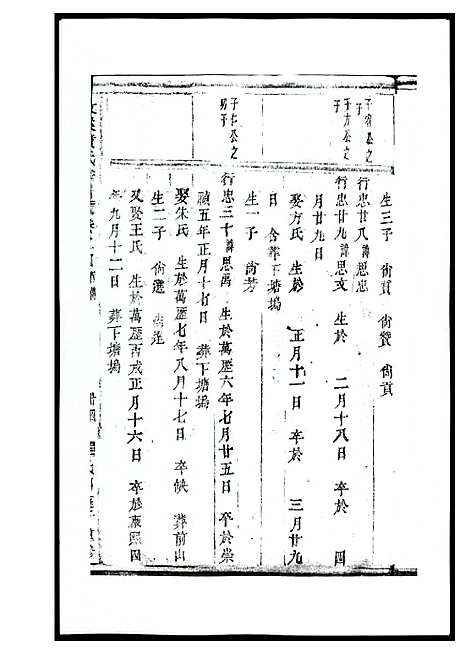 生三子 尙賓 尙贊 尙貢
子
行忠廿八諱思忠
子方公之
子
行忠廿九諱思文 生於 二月十八日 卒於 四
月廿九日
娶方氏 生於 正月十一日 卒於 三月廿九
日 合葬下塘塢
生一子 尙芳
子仁公之
男子
行忠三十諱思禹 生於萬歷六年七月廿五日 卒於崇
禎五年正月十七日 葬下塘塢
娶朱氏 生於萬歷七年八月十七日 卒缺 葬前山
生二子 尙選 尙進
又娶王氏 生於萬歷 戌正月十六日 卒於康熙四
年九月十二日 葬下塘塢